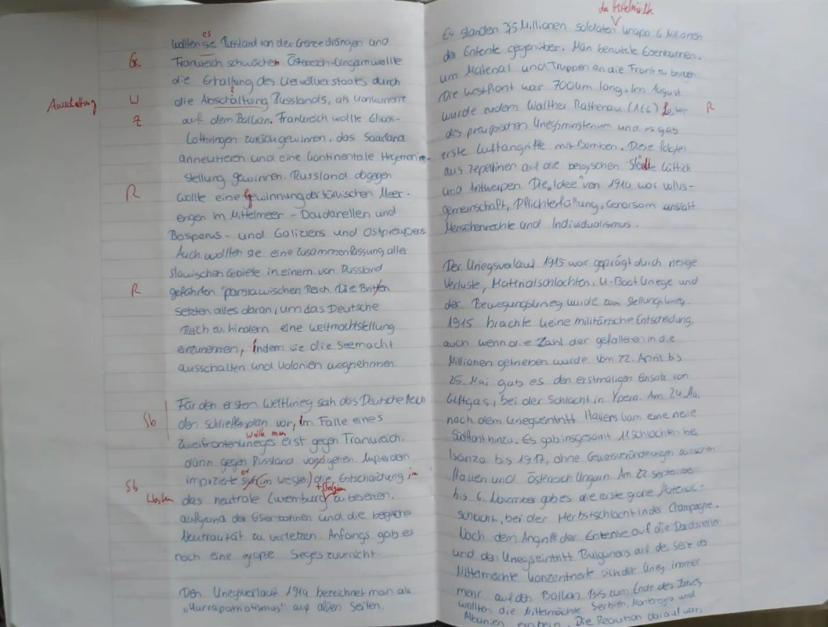 wollten sie Russland von der Grenze drängen und
es
Gr.
Frankreich schwächen. Österreich-Ungarn wollte
die Erhaltung des Vielvölkerstaats durch
Ausschaltung
W
die Abschaltung Russlands, als Konkurrent
Z
auf dem Balkan. Frankreich wollte Elsass-
Lothringen zurückgewinnen, das Saarland
annektieren und eine Kontinentale Hegemonie-
stellung gewinnen. Russland dagegen
R
wollte eine Gewinnung der türkischen Meer-
engen im Mittelmeer - Dardanellen und
Bosporus - und Galiziens und Ostpreußens
Auch wollten sie eine Zusammenfassung aller
slawischen Gebiete in einem von Russland
R
geführten panslawischen Reich. Die Briten
setzten alles daran, um das Deutsche
Reich zu hindern eine Weltmachtstellung
einzunehmen, indem sie die Seemacht
ausschalten und Kolonien wegnehmen.
Für den ersten Weltkrieg sah das Deutsche Reich
Sb
den Schlieffenplan vor, im Falle eines
wollte man
Zweifrontenkrieges erst gegen Frankreich,
dann gegen Russland vorzugehen. Außerdem
Sb
implizierte (im Westen) die Entscheidung
+ Belgien
das neutrale Luxemburg zu besetzen,
aufgrund der Eisenbahnen und die belgische
Neutralität zu verletzen. Anfangs gab es
noch eine große Siegeszuversicht.
Den Kriegsverlauf 1914 bezeichnet man als
„Hurrapatriotismus" auf allen Seiten.
der Mittelmächte
Es standen 3,5 Millionen Soldaten knapp 6 Millionen
der Entente gegenüber. Man benutzte Eisenbahnen,
um Material und Truppen an die Front zu bringen.
Die Westfront war 700km lang. Im August
wurde zudem Walther Rathenau
R
des preußischen Kriegsministerium und es gab
erste Luftangriffe mit Bomben. Diese
aus Zeppelinen auf die belgischen Städte Lüttich
und Antwerpen. Die „Idee" von 1914 war Volks-
gemeinschaft, Pflichterfüllung, Gehorsam anstatt
Menschenrechte und Individualismus.
Der Kriegsverlauf 1915 war geprägt durch riesige
Verluste, Materialschlachten, U-Boot Kriege und
der Bewegungskrieg wurde zum Stellungskrieg.
1915 brachte keine militärische Entscheidung,
auch wenn die Zahl der gefallenen in die
Millionen getrieben wurde. Vom 22. April bis
25. Mai gab es den erstmaligen Einsatz von
Giftgas, bei der Schlacht in Ypern. Am 24. Mai
nach dem Kriegseintritt Italiens kam eine neue
Südfront hinzu. Es gab insgesamt 11 Schlachten bei
Isonzo bis 1917, ohne Grenzveränderungen zwischen
Italien und Österreich Ungarn. Am 22. September
bis 6. November gab es die erste große
schlacht, bei der Herbstschlacht in der Champagne.
Nach dem Angriff der Entente auf die Dardanellen
und den Kriegseintritt Bulgariens auf der Seite der
Mittelmächte konzentrierte sich der Krieg immer
mehr auf den Balkan. Bis zum Ende des Jahres
wollten die Mittelmächte Serbien, Montenegro und
Albanien Die Reaktion darauf war,